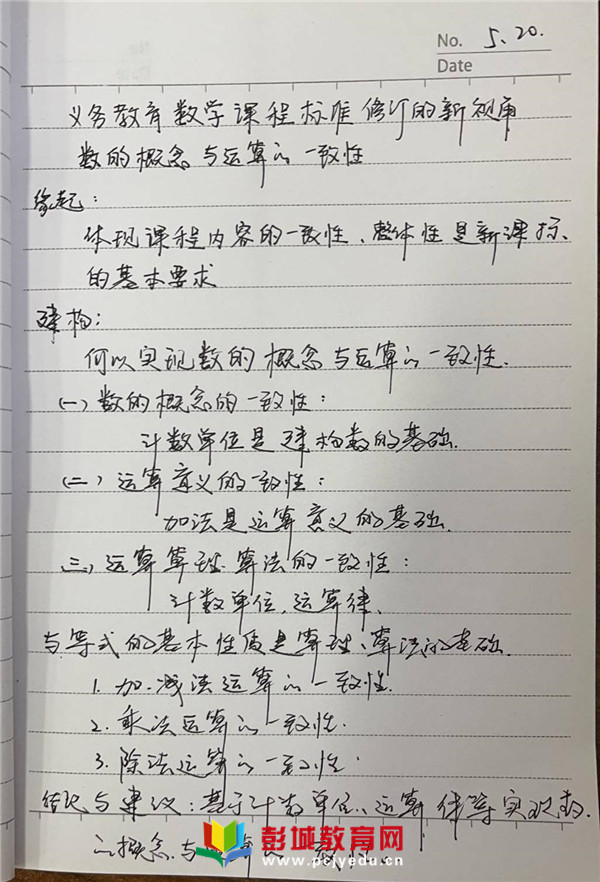 No. 5.20.
Date
义务教育数学课程标准修订的新视角
数的概念与运算的一致性
缘起:
体现课程内容的一致性、整体性是新课标
的基本要求
建构:
何以实现数的概念与运算的一致性.
(一)数的概念的一致性:
计数单位是建构数的基础.
(二)运算意义的一致性:
加法是运算意义的基础.
(三)运算算理、算法的一致性:
计数单位,运算律、
与等式的基本性质是算理、算法的基础.
1.加、减法运算的一致性.
2.乘法运算的一致性.
3.除法运算的一致性.
结论与建议:基于计数单位、运算律等实现数
的概念与运算的一致性.
彭城教育网
www.pcjyedu.cn